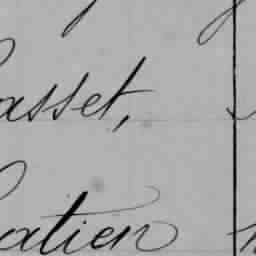 asset,
atien